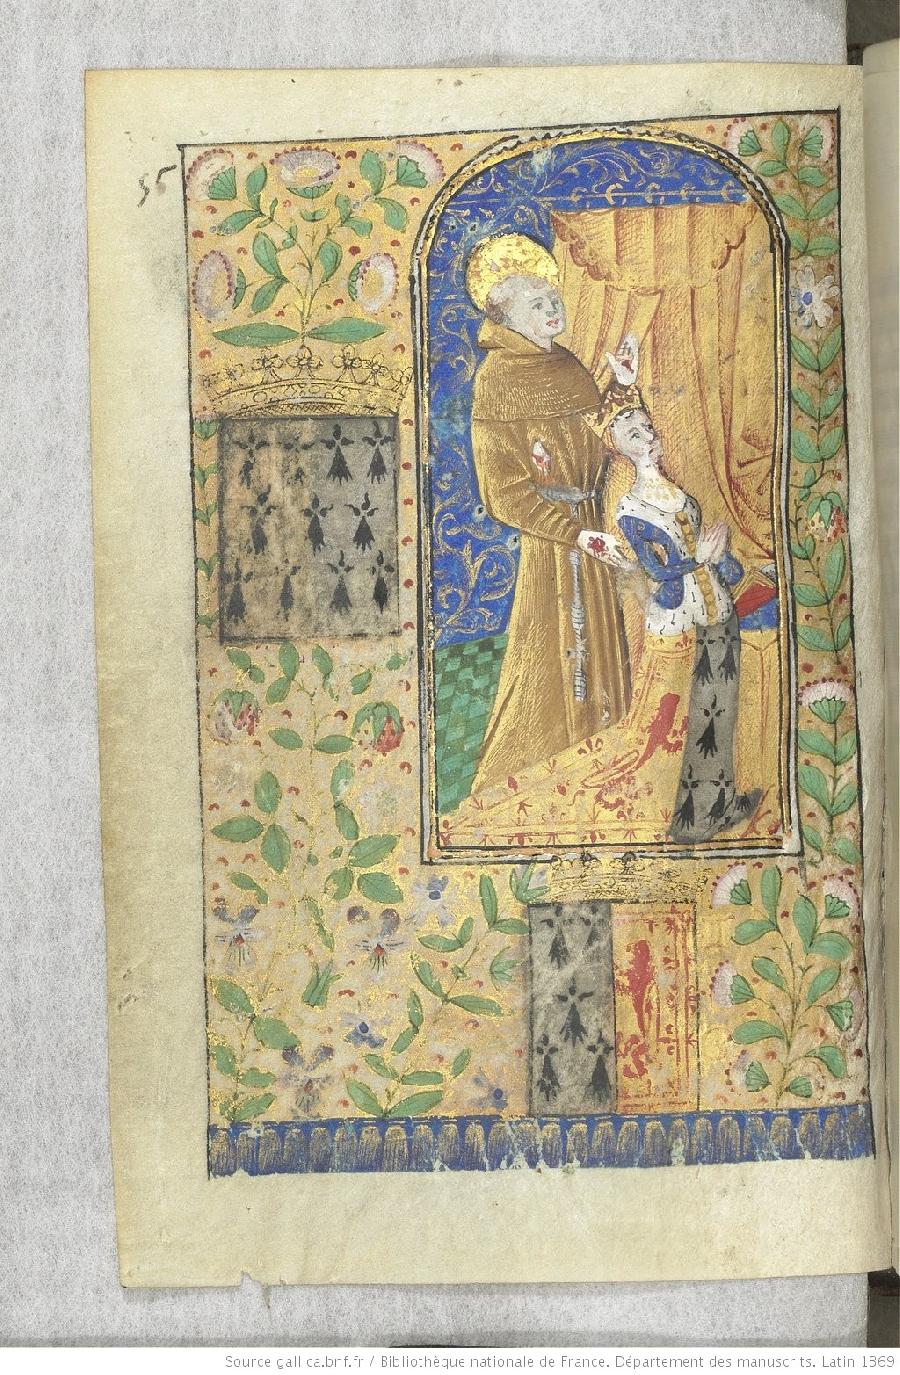 56
Source gallica.bnf.fr / Bibliothèque nationale de France. Département des manuscrits. Latin 1369